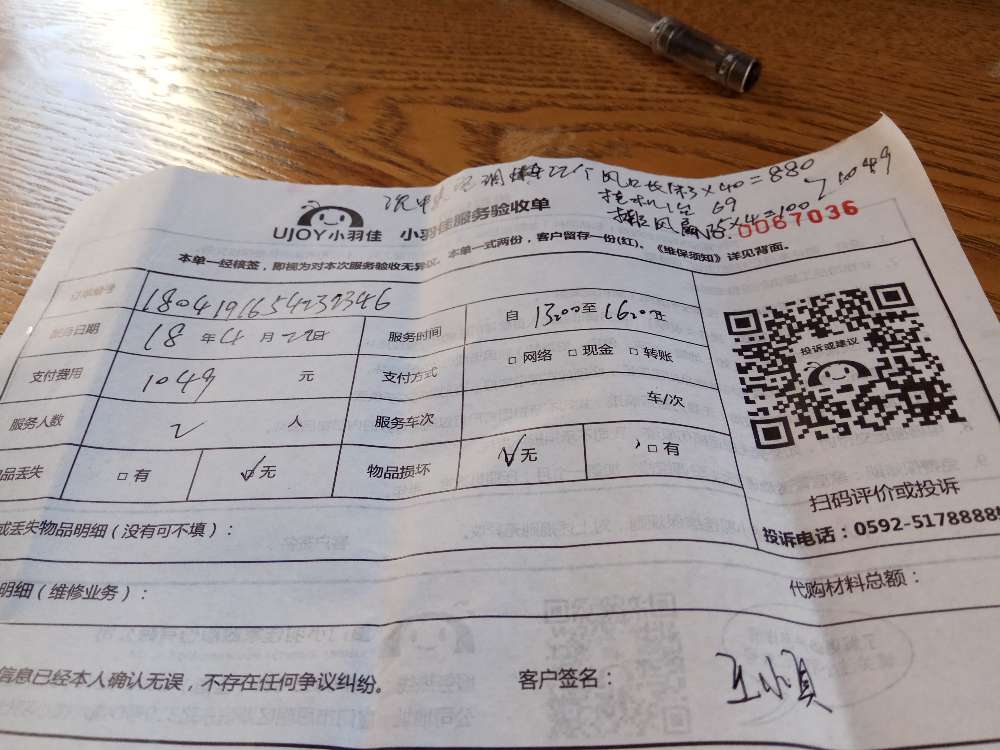 洗中央空调 22个风口长1米3×40=880
挂机1台 69
换风扇 25×4=100
1049
UJOY小羽佳 小羽佳服务验收单
NO.0067036
本单一经核签，即视为对本次服务验收无异议。本单一式两份，客户留存一份(红)。《维保须知》详见背面。
订单编号 1804191654232346
服务日期 18年4月22日 服务时间 自 1300至1620止
支付费用 1049 元 支付方式 □网络 □现金 □转账
服务人数 2 人 服务车次 车/次
品丢失 □有 □无 物品损坏 □无 □有
投诉或建议
扫码评价或投诉
投诉电话：0592-5178888
或丢失物品明细（没有可不填）：
明细（维修业务）： 代购材料总额：
信息已经本人确认无误，不存在任何争议纠纷。 客户签名：